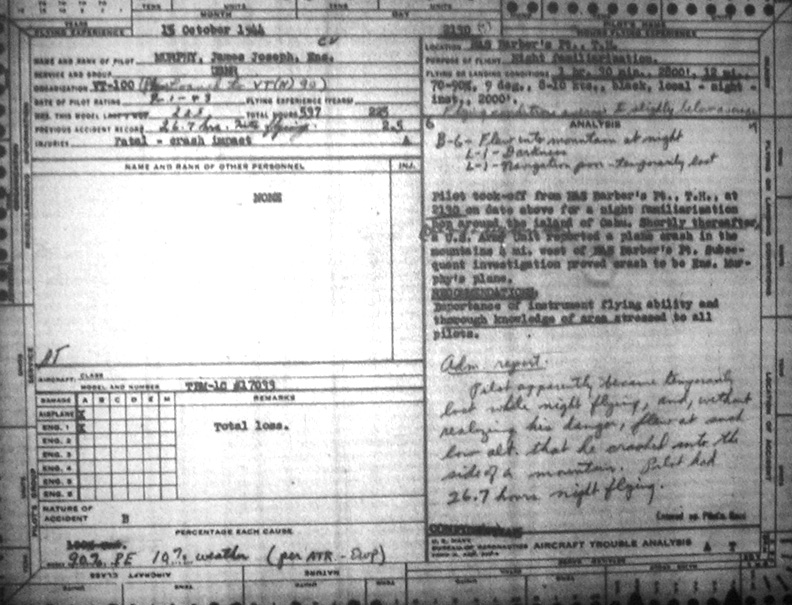 MONTH
DAY
YEARS
FLYING EXPERIENCE
15 October 1944
2130
CV
NAME AND RANK OF PILOT MURPHY, James Joseph, Ens.
SERVICE AND GROUP USNR
ORGANIZATION VT-100 to VT(N) 90)
DATE OF PILOT RATING 2-1-43 FLYING EXPERIENCE (YEARS)
HRS. THIS MODEL TOTAL HOURS 537 225
PREVIOUS ACCIDENT RECORD 26.7 hrs. Nite flying 2.5
INJURIES Fatal - crash impact A
NAME AND RANK OF OTHER PERSONNEL INJ.
NONE
AIRCRAFT: CLASS
MODEL AND NUMBER TBM-1C #17099
DAMAGE A B C D E M REMARKS
AIRPLANE X
ENG. 1 X Total loss.
ENG. 2
ENG. 3
ENG. 4
ENG. 5
ENG. 6
NATURE OF
ACCIDENT B
PERCENTAGE EACH CAUSE
90% PE 10% weather (per ATR - Dwp)
LOCATION NAS Barber's Pt., T.H.
PURPOSE OF FLIGHT Night familiarization.
FLYING OR LANDING CONDITIONS 1 hr. 30 min., 2800', 12 mi.,
70-90%, 9 deg., 8-10 kts., black, local - night -
inst., 2000'.
Flying conditions average to slightly below average
6 ANALYSIS
B-6- Flew into mountain at night
L-1- Darkness
L-1- Navigation poor - temporarily lost
Pilot took-off from NAS Barber's Pt., T.H., at
2130 on date above for a night familiarization
hop around the island of Oahu. Shortly thereafter,
a U.S. Army Unit reported a plane crash in the
mountains 4 mi. west of NAS Barber's Pt. Subse-
quent investigation proved crash to be Ens. Mur-
phy's plane.
RECOMMENDATIONS
Importance of instrument flying ability and
thorough knowledge of area stressed to all
pilots.
Adm report:
Pilot apparently became temporarily
lost while night flying, and, without
realizing his danger, flew at such
low alt. that he crashed into the
side of a mountain. Pilot had
26.7 hours night flying.
U. S. NAVY
BUREAU OF AERONAUTICS AIRCRAFT TROUBLE ANALYSIS A T